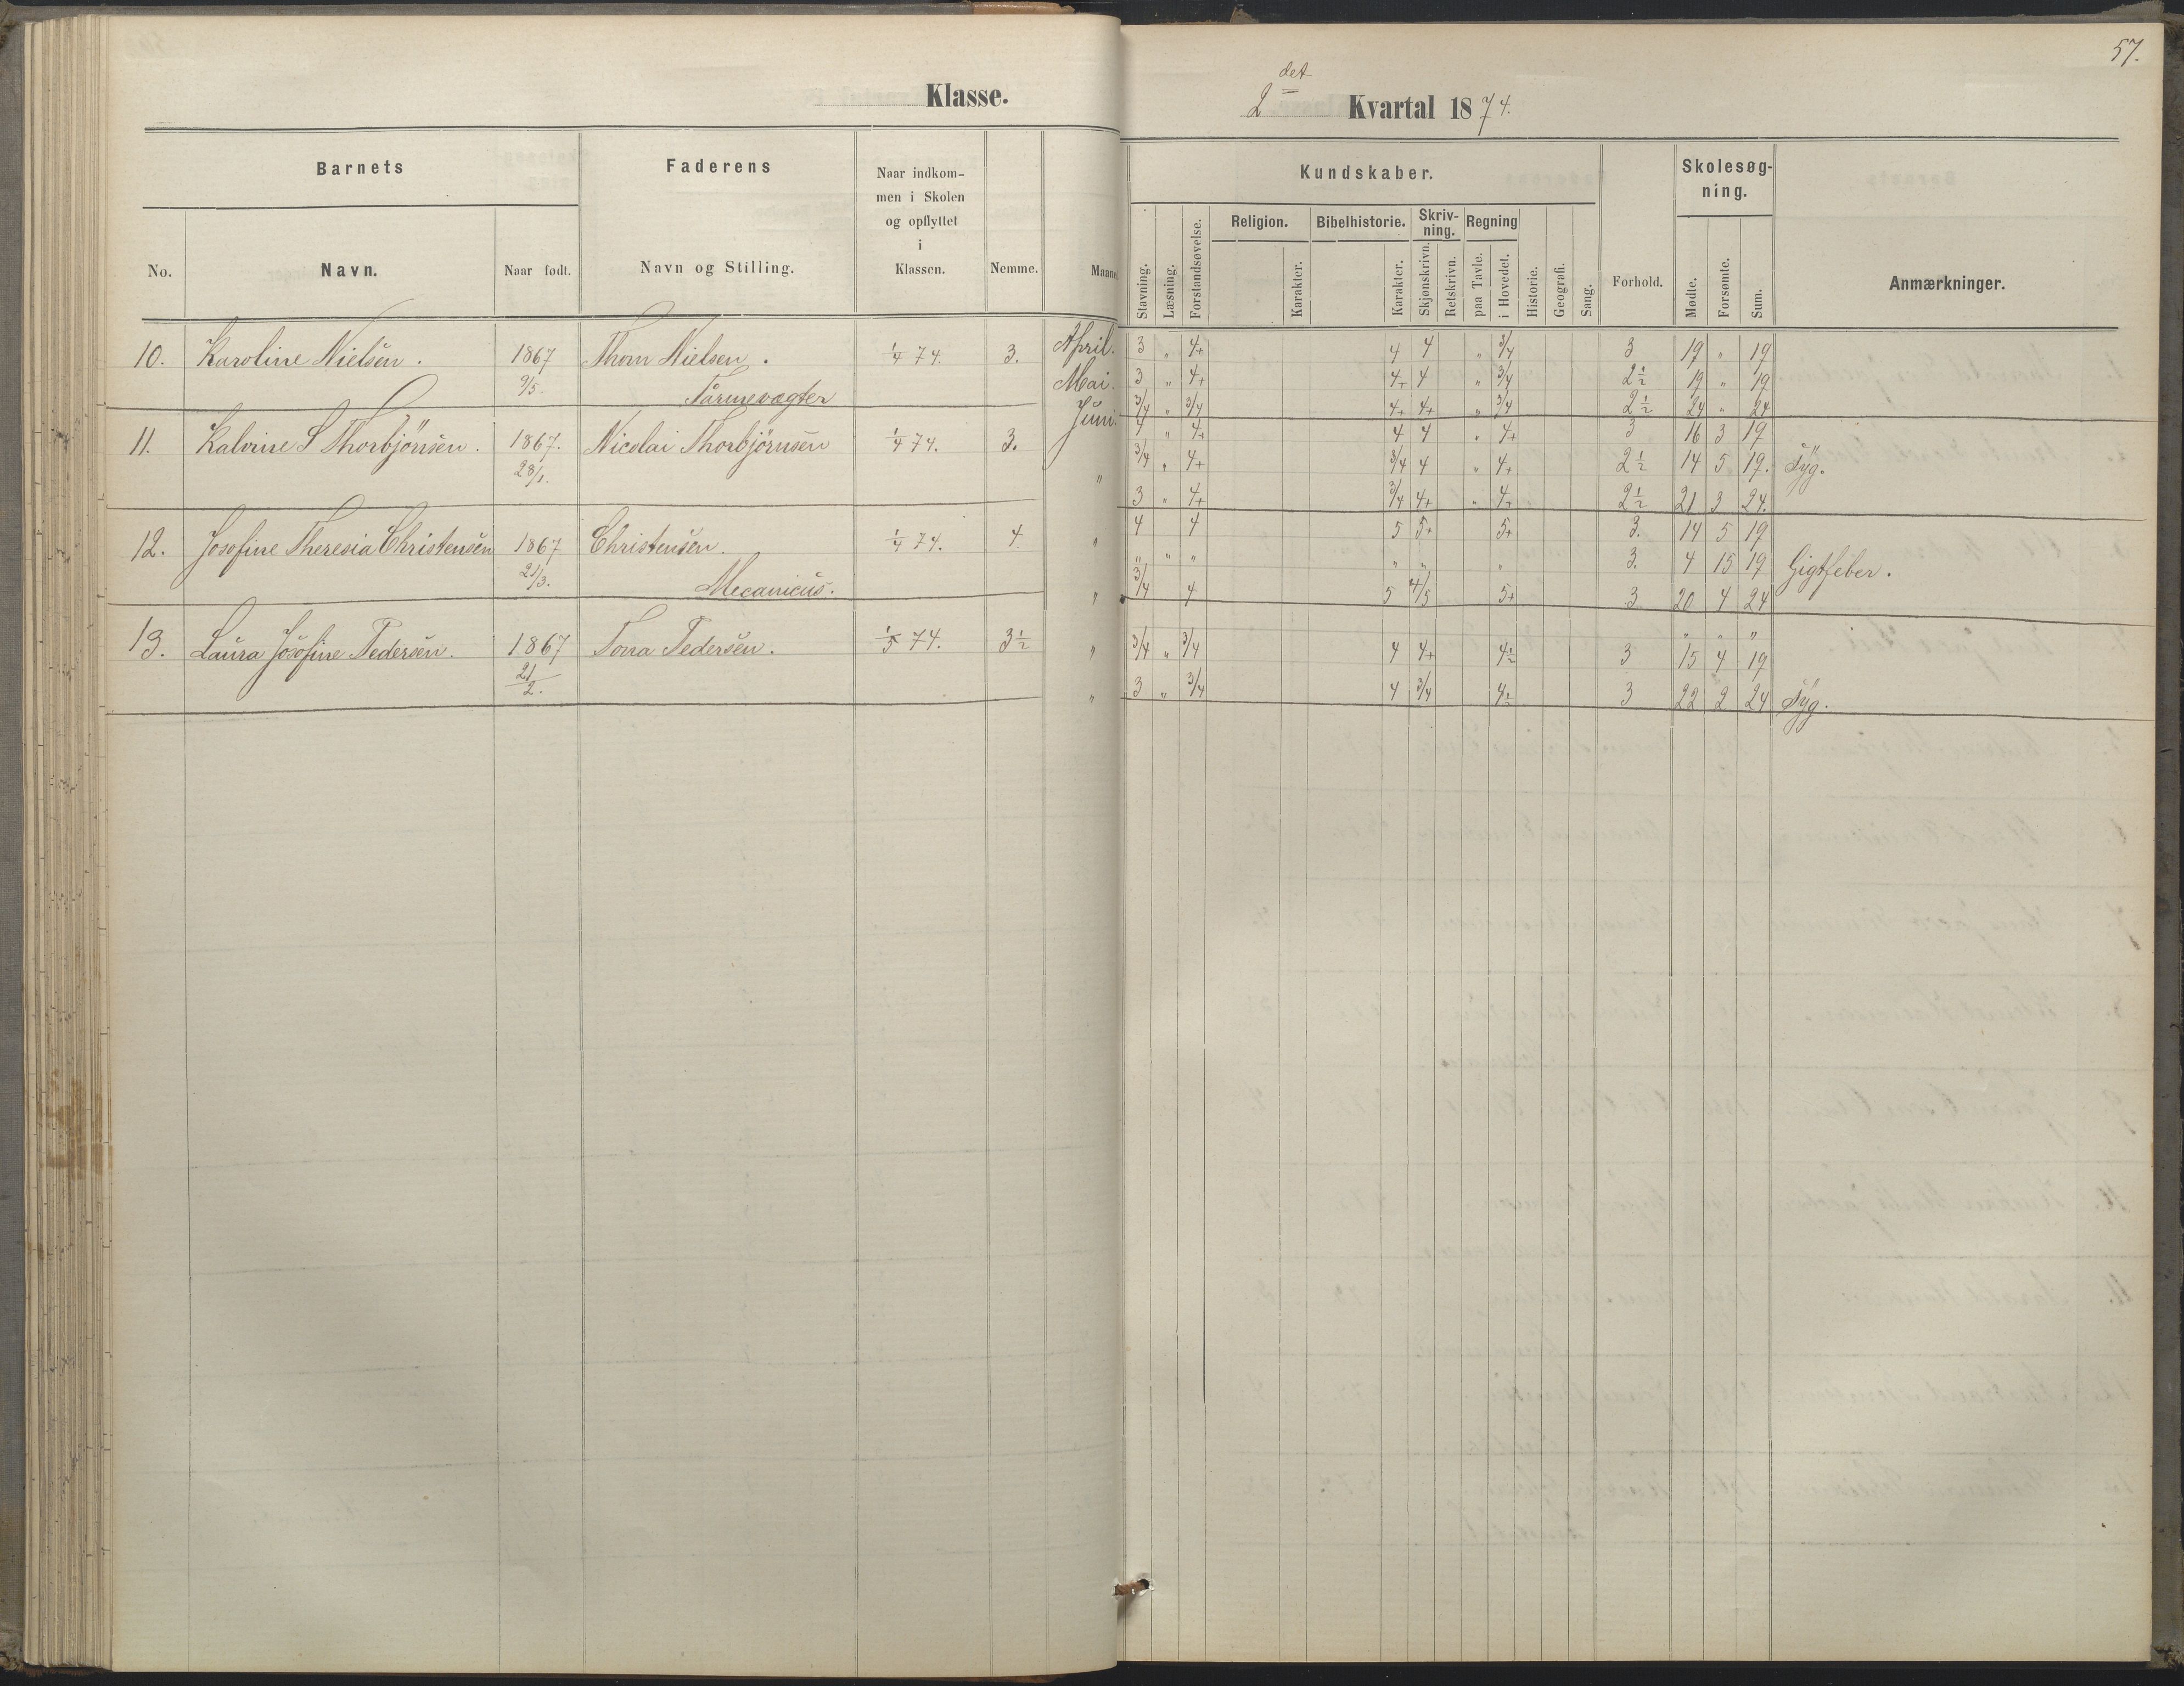 57.
Klasse.
2 det Kvartal 1874.
Barnets
Faderens
Naar indkom-
men i Skolen
og opflyttet
i
Klassen.
No.
Navn.
Naar født.
Navn og Stilling.
Nemme.
Kundskaber.
Skolesøg-
ning.
Stavning.
Læsning.
Forstandsøvelse.
Religion.
Karakter.
Bibelhistorie.
Karakter.
Skriv-
ning.
Skjønskrivn.
Retskrivn.
Regning
paa Tavle.
i Hovedet.
Historie.
Geografi.
Sang.
Forhold.
Mødte.
Forsømte.
Sum.
Anmærkninger.
10. Karoline Nielsen. 1867 Thom Nielsen. 1/4 74. 3. April. 3 „ 4+ 4 4 „ 3/4 3 19 „ 19
9/5. Mai. 3 „ 4+ 4+ 4 „ 3/4 2½ 19 „ 19
Juni. 3/4 „ 3/4 4+ 4+ „ 3/4 2½ 24 „ 24
11. Kalvine S Thorbjönsen. 1867. Nicolai Thorbjörnsen 1/4 74. 3. 4 „ 4+ 4 4 „ 4+ 3 16 3 19
28/1. „ 3/4 „ 4+ 3/4 4 „ 4+ 2½ 14 5 19. Syg.
3 „ 4+ 3/4 4+ „ 4+ 2½ 21 3 24.
12. Josofine Theresia Christensen 1867 Christensen. 1/4 74. 4 „ 4 4 5 5+ 5+ 3. 14 5 19
21/3. „ „ „ „ „ „ 3. 4 15 19 Gigtfeber.
Mecanicus. „ 3/4 4 5 4/5 5+ 3 20 4 24
„ „ „
13. Laura Josofine Pedersen. 1867 Tona Pedersen. 1/5 74. 3½ „ 3/4 „ 3/4 4 4+ 4½ 3 15 4 19
21/2. „ 3 „ 3/4 4 3/4 4½ 3 22 2 24 Syg.